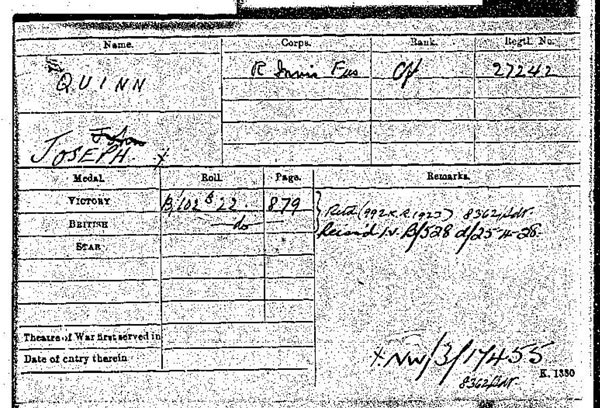 Name. Corps. Rank. Regtl. No.
QUINN R Innis Fus 27242
JOSEPH x
Medal. Roll. Page. Remarks.
VICTORY B/102 B 22. 879 (992 K.R. 1923) 8362/Adt.
BRITISH do I.V. B/528 d/25-4-28.
STAR
Theatre of War first served in
Date of entry therein
x NW/3/17455
8362/Adt. K. 1380